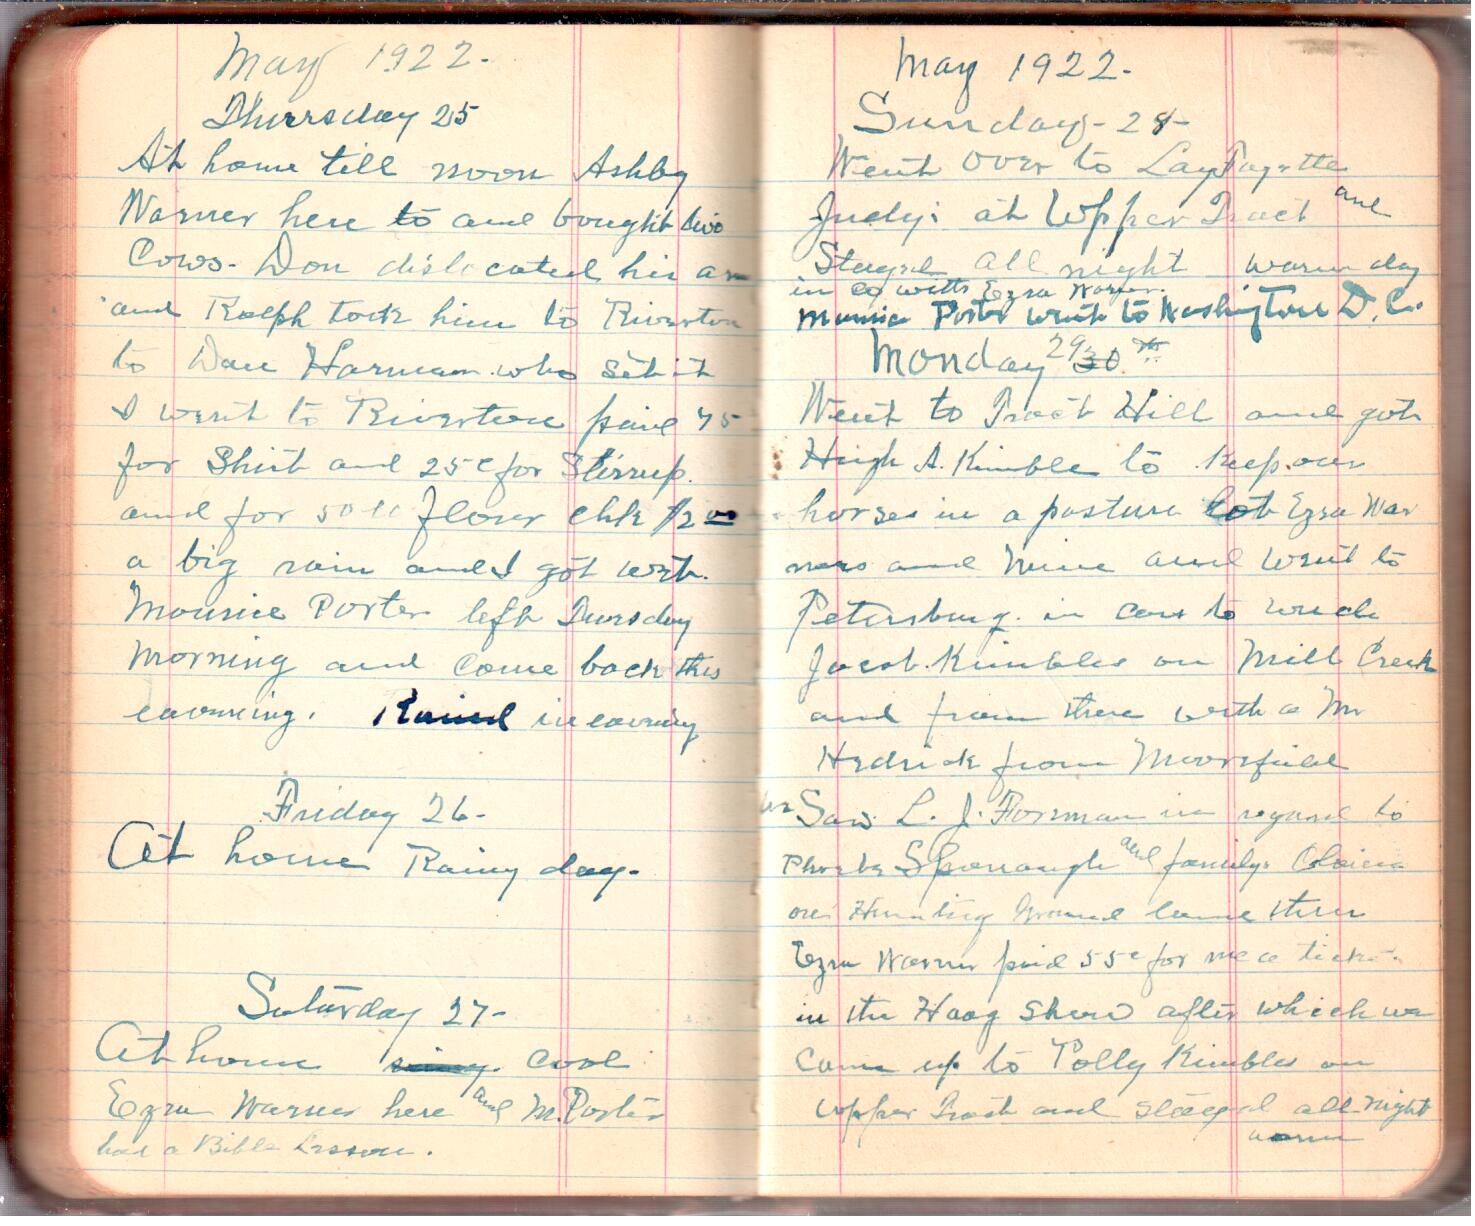 May 1922.
Thurrsday 25
At home till noon Ashby
Warner here to and bought two
Cows. Don dislocated his arm
and Ralph took him to Riverton
to Dan Harman who set it
I went to Riverton paid 75
for Shirt and 25c for Stirrup.
and for 50 lb flour chk $2 00
a big rain and I got wet.
Maurice Porter left Thursday
Morning and Come back this
eavening. Rained in eavening
Friday 26-
At home Rainy day.
Saturday 27-
At home cool
Ezra Warner here and M. Porter
had a Bible Lesson.
May 1922.
Sunday - 28-
Went over to LayFayette
Judy: at Upper Tract and
Stayed all night warm day
in co with Ezra Warner.
Maurice Porter went to Washington D.C.
Monday 29 30th
Went to Tract Hill and got
Hugh A. Kimble to keep our
horses in a pasture lot Ezra War
ners and Mine and went to
Petersburg in car to
Jacob Kimbles on Mill Creek
and from there with a Mr
Hedrick from Moorefield
we Saw L. J. Forman in regard to
Phoebe Sponaugle and family
on Hunting Ground came then
Ezra Warner paid 55c for me a ticket
in the Haag Show after which we
Came up to Polly Kimbles on
Upper Tract and stayed all night
warm